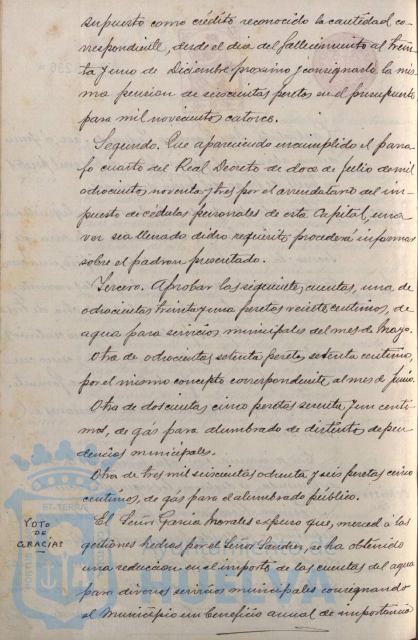 supuesto como crédito reconocido la cantidad co-
rrespondiente, desde el dia del fallecimiento al trein
ta y uno de Diciembre proximo y consignarlo la mis
ma pension de seiscientas pesetas en el presupuesto
para mil novecientos catorce.
Segundo. Que apareciendo incumplido el parra
fo cuarto del Real Decreto de doce de Julio de mil
ochocientos noventa y tres por el arrendatario del im-
puesto de cédulas personales de esta Capital, una
vez sea llenado dicho requisito, procederá informar
sobre el padron presentado.
Tercero. Aprobar las siguientes cuentas, una de
ochocientas treinta y una pesetas veinte centimos, de
agua para servicios municipales del mes de Mayo.
Otra de ochocientas setenta pesetas setenta centimos,
por el mismo concepto correspondiente al mes de Junio.
Otra de doscientas cinco pesetas sesenta y un centi
mos, de gas para alumbrado de distintas depen
dencias municipales.
Otra de tres mil seiscientas ochenta y seis pesetas cinco
centimos, de gas para el alumbrado público.
VOTO
DE
GRACIAS
El Señor Garcia Morales expuso que, merced á las
gestiones hechas por el Señor Sanchez, se ha obtenido
una reduccion en el importe de las cuentas del agua
para diversos servicios municipales consignando
el Municipio un beneficio anual de importancia